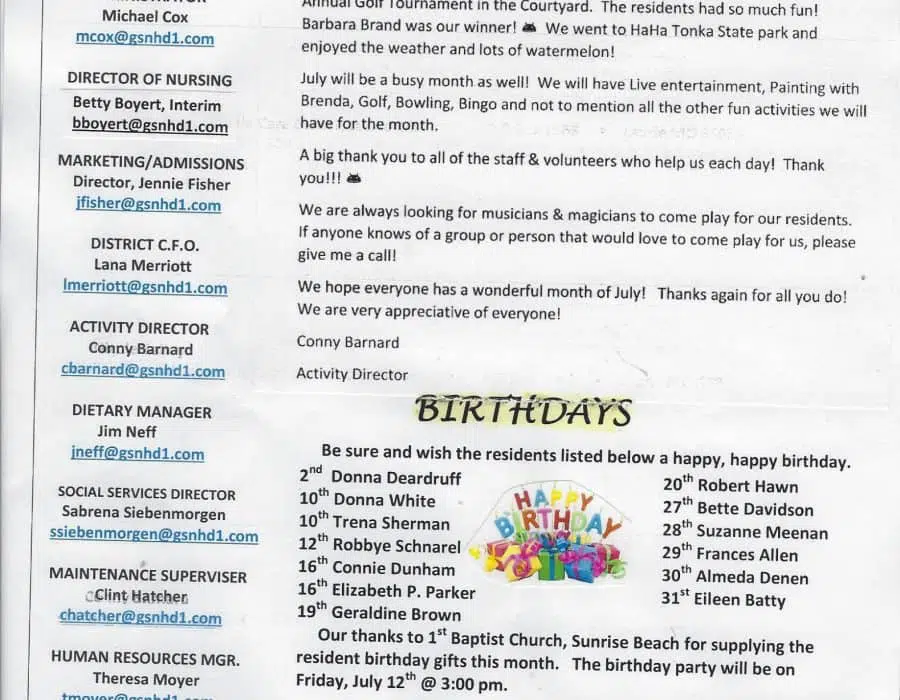 Michael Cox
mcox@gsnhd1.com
DIRECTOR OF NURSING
Betty Boyert, Interim
bboyert@gsnhd1.com
MARKETING/ADMISSIONS
Director, Jennie Fisher
jfisher@gsnhd1.com
DISTRICT C.F.O.
Lana Merriott
lmerriott@gsnhd1.com
ACTIVITY DIRECTOR
Conny Barnard
cbarnard@gsnhd1.com
DIETARY MANAGER
Jim Neff
jneff@gsnhd1.com
SOCIAL SERVICES DIRECTOR
Sabrena Siebenmorgen
ssiebenmorgen@gsnhd1.com
MAINTENANCE SUPERVISER
Clint Hatcher
chatcher@gsnhd1.com
HUMAN RESOURCES MGR.
Theresa Moyer
tmoyer@gsnhd1.com
Annual Golf Tournament in the Courtyard. The residents had so much fun!
Barbara Brand was our winner! We went to HaHa Tonka State park and
enjoyed the weather and lots of watermelon!
July will be a busy month as well! We will have Live entertainment, Painting with
Brenda, Golf, Bowling, Bingo and not to mention all the other fun activities we will
have for the month.
A big thank you to all of the staff & volunteers who help us each day! Thank
you!!!
We are always looking for musicians & magicians to come play for our residents.
If anyone knows of a group or person that would love to come play for us, please
give me a call!
We hope everyone has a wonderful month of July! Thanks again for all you do!
We are very appreciative of everyone!
Conny Barnard
Activity Director
BIRTHDAYS
Be sure and wish the residents listed below a happy, happy birthday.
2nd Donna Deardruff
10th Donna White
10th Trena Sherman
12th Robbye Schnarel
16th Connie Dunham
16th Elizabeth P. Parker
19th Geraldine Brown
HAPPY
BIRTHDAY
20th Robert Hawn
27th Bette Davidson
28th Suzanne Meenan
29th Frances Allen
30th Almeda Denen
31st Eileen Batty
Our thanks to 1st Baptist Church, Sunrise Beach for supplying the
resident birthday gifts this month. The birthday party will be on
Friday, July 12th @ 3:00 pm.